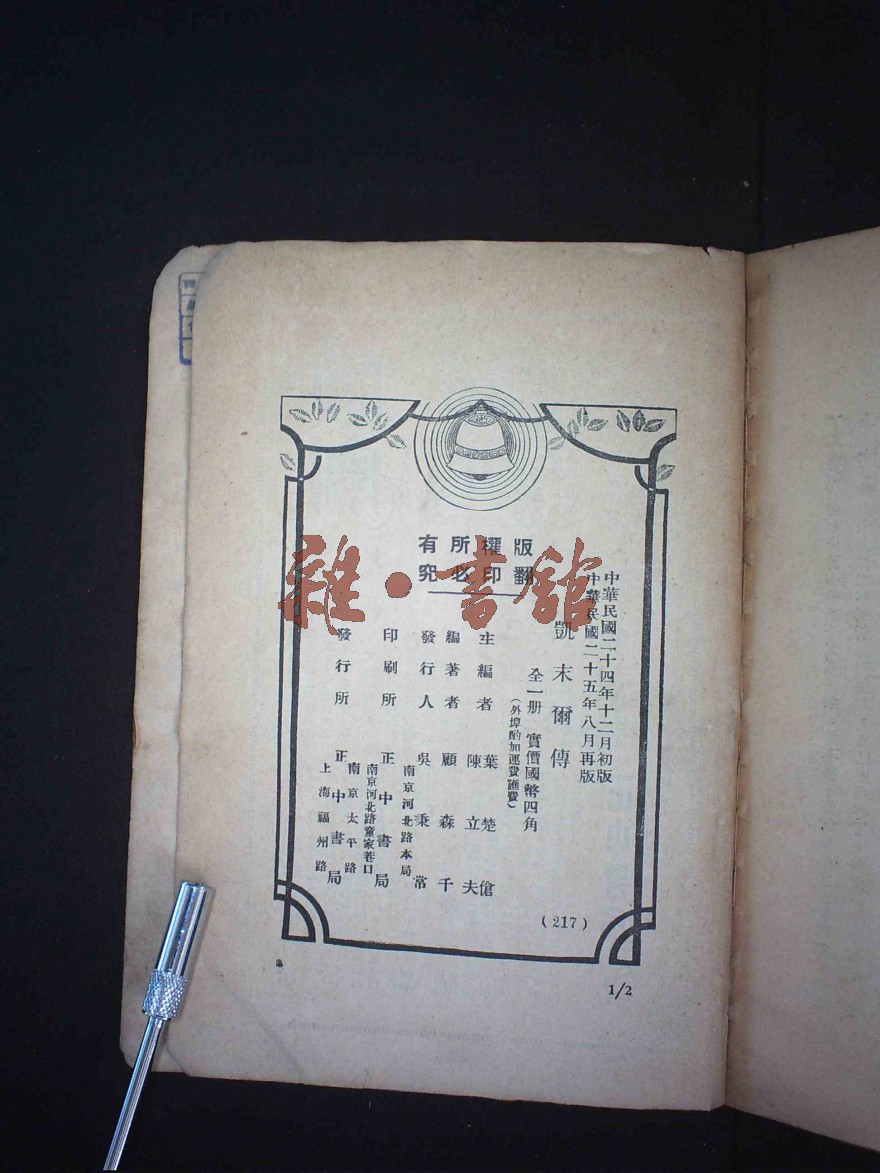 版權所有
翻印必究
中華民國二十四年十二月初版
中華民國二十五年八月再版
凱末爾傳
全一册 實價國幣四角
(外埠酌加運費匯費)
主編者 葉楚傖 陳立夫
編著者 顧森千
發行人 吳秉常
南京河北路本局
印刷所 正中書局
南京河北路童家巷口
發行所 正中書局
南京太平路
上海福州路
(217)
1/2
雜·書舘